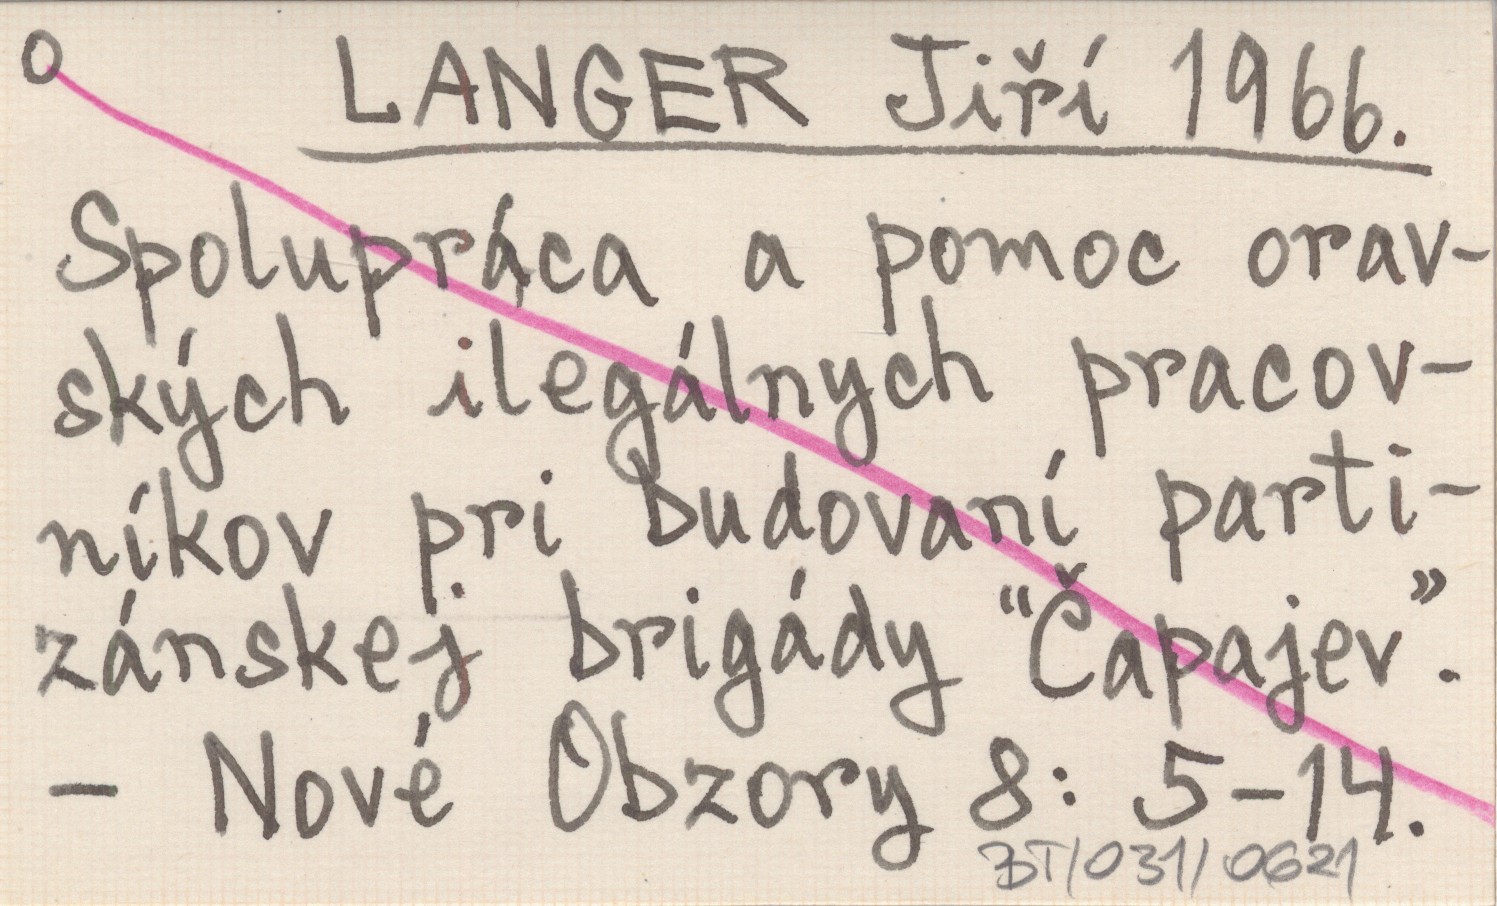 O
LANGER Jiří 1966.
Spolupráca a pomoc orav-
ských ilegálnych pracov-
níkov pri budovaní parti-
zánskej brigády "Čapajev".
- Nové Obzory 8: 5-14.
BT/031/0621